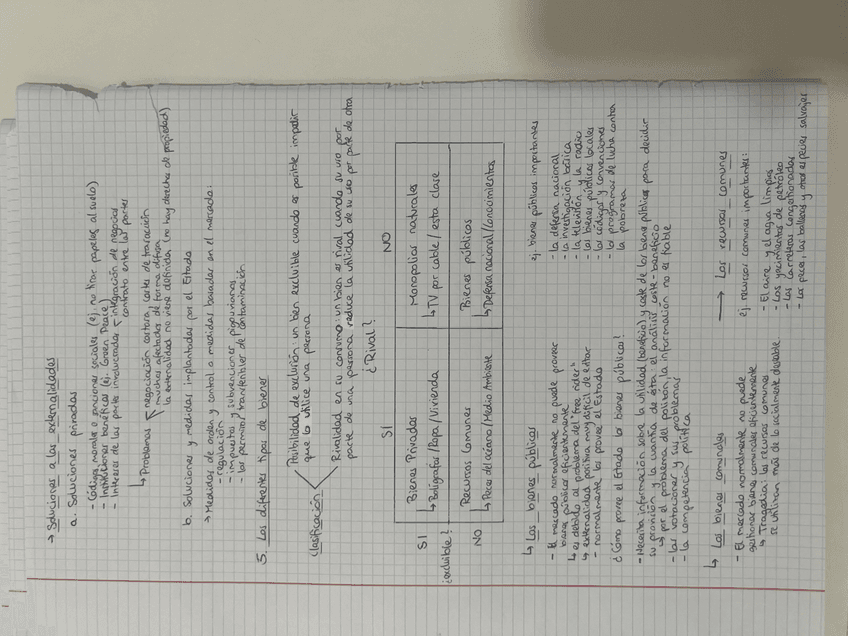 → Soluciones a las externalidades
a. Soluciones privadas
- Códigos morales o sanciones sociales (ej. no tirar papeles al suelo)
- Instituciones benéficas (ej. Green Peace)
- Intereses de las partes involucradas
integración de negocios
contrato entre las partes
↳ Problemas
negociación costosa, costes de transacción
muchos afectados de forma difusa
la externalidad no viene definida (no hay derechos de propiedad)
b. Soluciones y medidas implantadas por el Estado
→ Medidas de orden y control o medidas basadas en el mercado:
- regulación
- impuestos y subvenciones pigouvianos
- los permisos transferibles de contaminación
5. Los diferentes tipos de bienes
Clasificación
Posibilidad de exclusión: un bien excluible cuando es posible impedir
que lo utilice una persona
Rivalidad en su consumo: un bien es rival cuando su uso por
parte de una persona reduce la utilidad de su uso por parte de otra
¿Rival?
SI
NO
¿excluible?
SI
Bienes Privados
↳ Bolígrafos/Ropa/Vivienda
Monopolios naturales
↳ TV por cable / esta clase
NO
Recursos Comunes
↳ Peces del océano/Medio Ambiente
Bienes públicos
↳ Defensa nacional/Conocimientos
↳ Los bienes públicos
- El mercado normalmente no puede proveer
bienes públicos eficientemente
↳ es debido al problema del "free rider"
↳ externalidad positiva muy difícil de evitar
- normalmente, los provee el Estado
ej. bienes públicos importantes
- la defensa nacional
- la investigación básica
- la televisión y la radio
- los bienes públicos locales
- los códigos y convenciones
- los programas de lucha contra
la pobreza
¿Cómo provee el Estado los bienes públicos?
- Necesita información sobre la utilidad (beneficio) y coste de los bienes públicos para decidir
su provisión y la cuantía de ésta: el análisis coste-beneficio
↳ por el problema del polizón, la información no es fiable
- las votaciones y sus problemas
- la competencia política
↳ Los bienes comunales
- El mercado normalmente no puede
gestionar bienes comunales eficientemente
↳ Tragedia: los recursos comunes
se utilizan más de lo socialmente deseable
→ Los recursos comunes
ej. recursos comunes importantes:
- El aire y el agua limpios
- Los yacimientos de petróleo
- Las carreteras congestionadas
- Los peces, las ballenas y otras especies salvajes